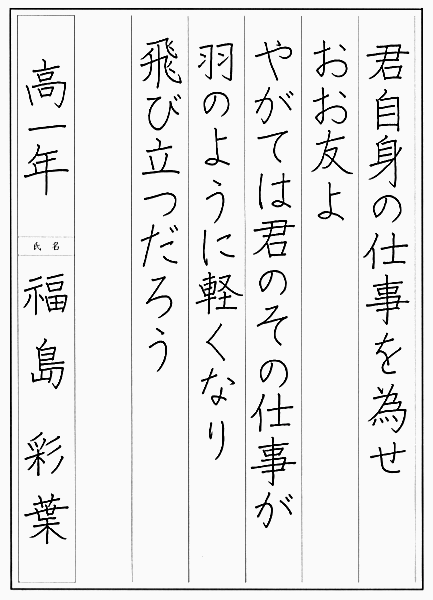 君自身の仕事を為せ
おお友よ
やがては君のその仕事が
羽のように軽くなり
飛び立つだろう
高一年
氏名
福島彩葉